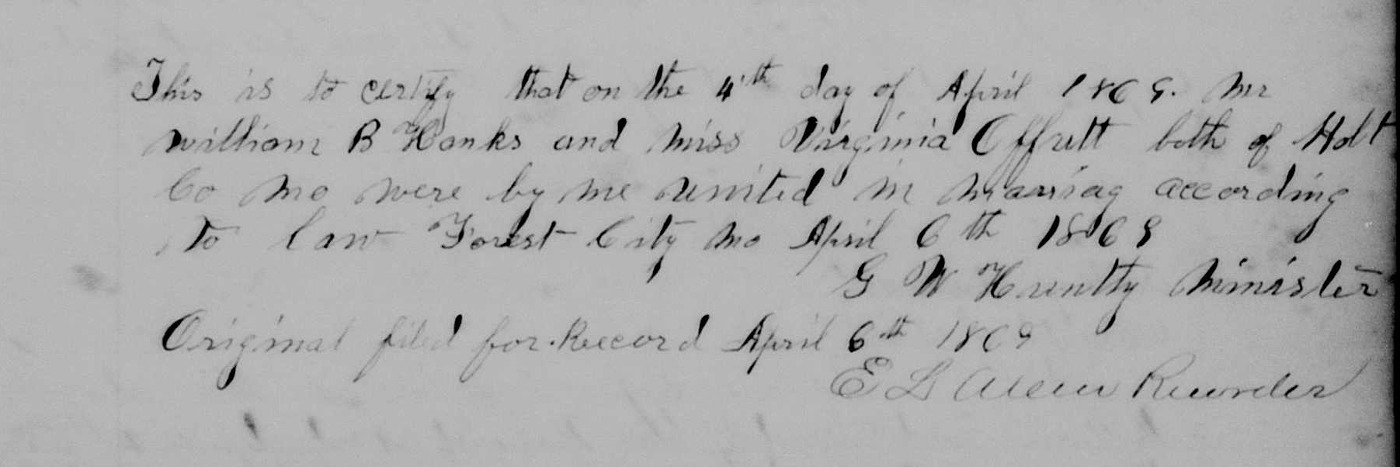 This is to certify that on the 4th day of April 1869. Mr
William B Hanks and Miss Virginia Offutt both of Holt
Co Mo were by me united in marriag according
to law Forest City Mo April 6th 1869
G W Huntly Minister
Original filed for Record April 6th 1869
E L Allen Recorder